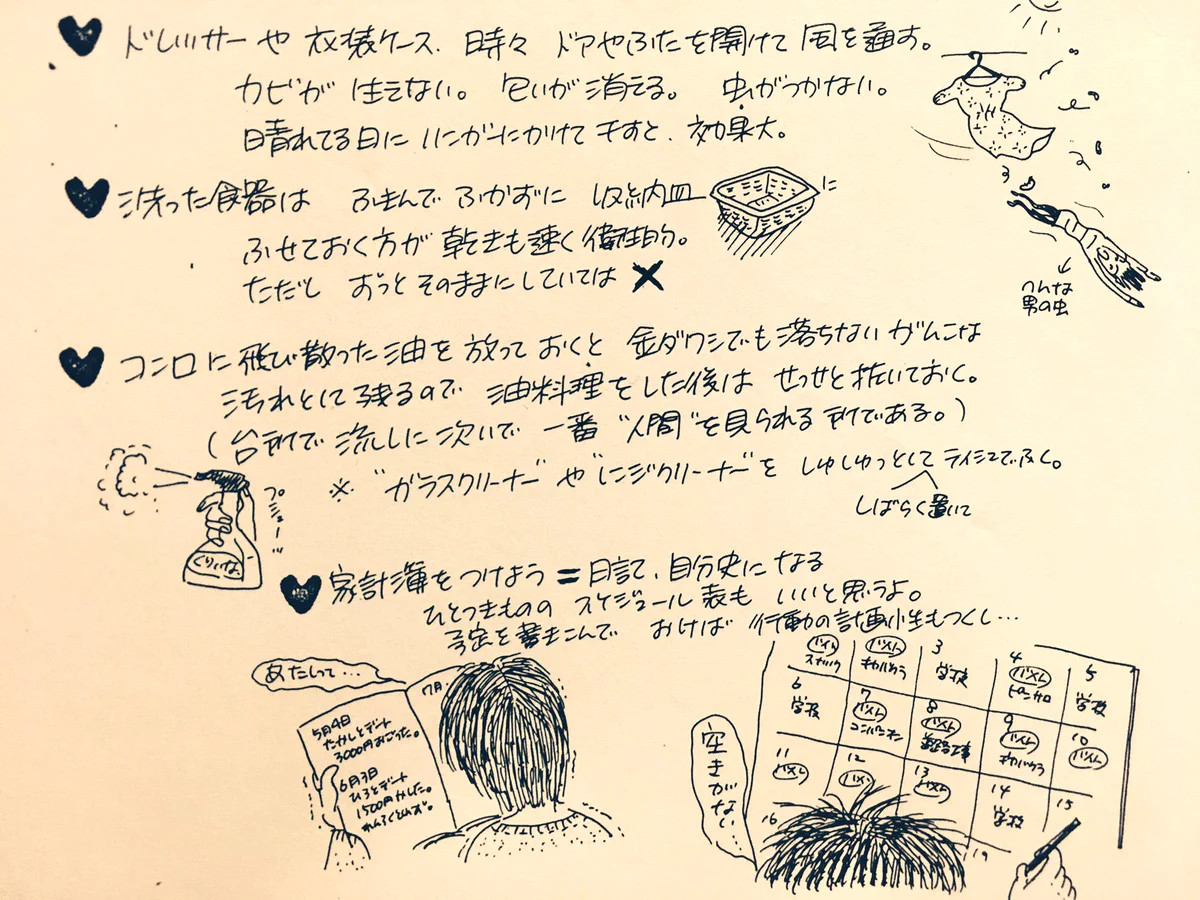 ドレッサーや 衣装ケース、時々 ドアやふたを開けて 風を通す。
カビが 生えない。 匂いが消える。 虫がつかない。
晴れてる日に ハンガーにかけて 干すと、効果大。
へんな
男の虫
洗った食器は ふきんで ふかずに 収納皿
に
ふせておく方が 乾きも速く 衛生的。
ただし ずっと そのままにしていては ✕
コンロに飛び散った油を放っておくと 金ダワシでも落ちない がんこな
汚れとして残るので 油料理をした後は せっせと拭いておく。
(台所で 流しに次いで 一番 “人間”を見られる 所である。)
※ “ガラスクリーナー”や“レンジクリーナー”を しゅしゅっとして ティシュでふく。
しばらく置いて
プシューッ
くりいな
家計簿をつけよう = 日記、自分史になる
ひとつきものの スケジュール表も いいと思うよ。
予定を書きこんで おけば 行動の計画性もつくし…
あたしって…
7月
5月4日
たかしとデート
3000円おごった。
6月3日
ひろとデート
1500円かした。
れんらくとんズ。
空きがない
バイト
スナック
バイト
3
学校
4
バイト
5
学校
6
学校
7
バイト
コンパニオン
8
バイト
9
バイト
10
バイト
11
バイト
12
バイト
13
バイト
14
学校
15
16
19